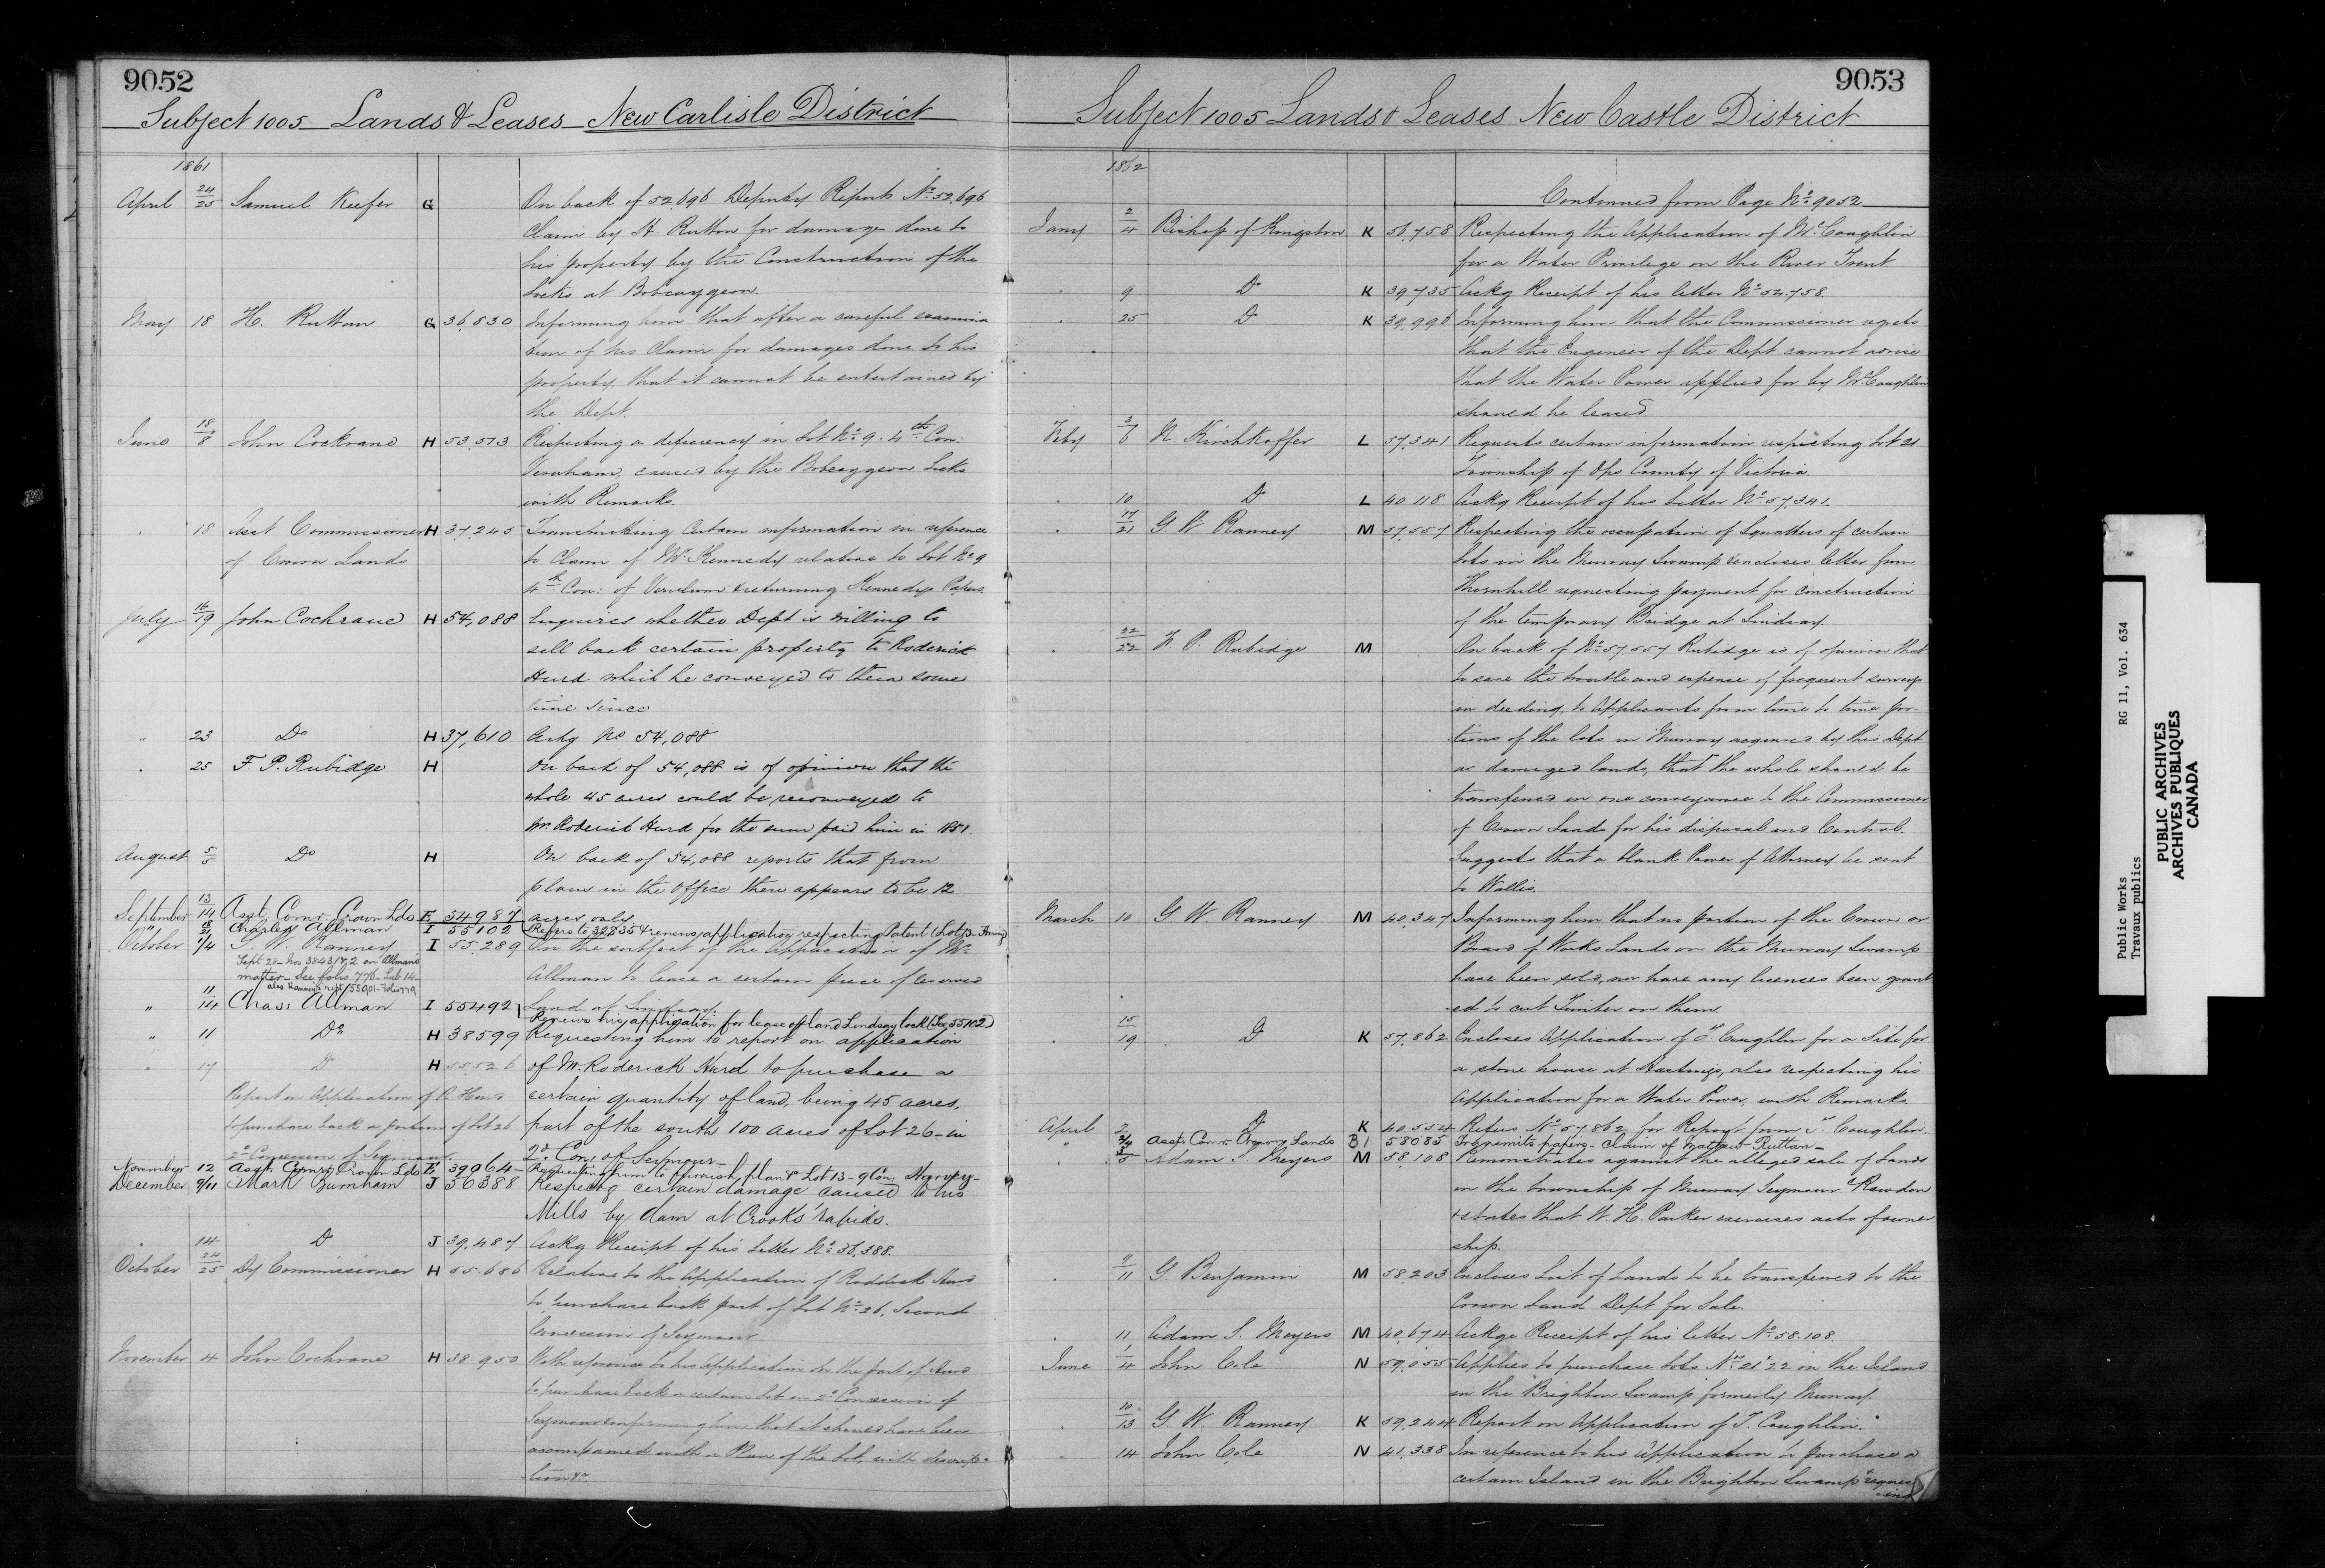 9052
Subject 1005 Lands & Leases New Carlisle District
1861
April 24/25 Samuel Keefer G On back of 52,696 Deputy Reports No. 52,696
claim by H. Ruttan for damage done to
his property by the Construction of the
Locks at Bobcaygeon
May 18 H. Ruttan G 36,830 Informing him that after a careful examina
tion of his claim for damages done to his
property, that it cannot be entertained by
the Dept.
June 18/8 John Cockrane H 53,513 Respecting a deficiency in Lot No. 9. 4th Con:
Verulam, caused by the Bobcaygeon Locks
with Remarks.
18 Asst Commissioner H 37,245 Transmitting certain information in reference
of Crown Lands to claim of Mr. Kennedy relative to Lot No 9
4th Con: of Verulum & returning Kennedys Papers
July 16/19 John Cochrane H 54,088 Enquires whether Dept is willing to
sell back certain property to Roderick
Hurd which he conveyed to them some
time since
" 23 Do H 37,610 Ackg No 54,088
25 F. P. Rubidge H On back of 54,088 is of opinion that the
whole 45 acres could be reconveyed to
Mr. Roderick Hurd for the sum paid him in 1851.
August 5/5 Do H On back of 54,088 reports that from
plans in the office there appears to be 12
acres only
September 13/14 Asst. Comr. Crown Lds E 54987
" 18/21 Charles Allman I 55102 Refers to 32835 & renews application respecting Patent (Lot 13- Harvey)
October 1/4 G. W. Ranney I 55,289 On the subject of the Application of Mr.
Sept 28 - Nos 38431/4,2 on Allmans
matter - See folio 776 - Sub 14
also Ranneys rept 55901 - Folio 779
Allman to lease a certain piece of
Land at Lindsay.
" 11/14 Chas: Allman I 55492 Renews his application for lease of land Lindsay lock (See 55102)
" 11 Do H 38599 Requesting him to report on application
" 17 Do H 55,526 of Mr. Roderick Hurd to purchase a
Report on Application of R. Hurd certain quantity of land, being 45 acres,
to purchase back a portion of Lot 26 part of the south 100 acres of Lot 26 - in
2d Concession of Seymour. 2d. Con. of Seymour -
November 12 Asst. Comr. Crown Lds E 39064 Requesting him to furnish plan &c Lot 13 - 9 Con. Harvey -
December 9/11 Mark Burnham J 56388 Respectg certain damage caused to his
Mills by dam at Crooks' rapids.
14 Do J 39,487 Ackg Receipt of his Letter No. 56,388.
October 24/25 Dy Commissioner H 55,686 Relative to the Application of Roderick Hurd
to purchase back part of Lot No. 26, Second
Concession of Seymour
November 4 John Cochrane H 38,950 With reference to his Application on the part of Hurd
to purchase back a certain Lot in 2d Concession of
Seymour & informing him that it should have been
accompanied with a Plan of the Lot, with descrip-
tion &c
9053
Subject 1005 Lands & Leases New Castle District
1862
Continued from Page No. 9052
Jany 2/4 Bishop of Kingston K 56,758 Respecting the Application of Mr. Coughlin
for a Water Privilege on the River Trent
9 Do K 39,735 Ackg Receipt of his letter No. 54,758.
25 Do K 39,996 Informing him that the Commissioner regrets
that the Engineer of the Dept cannot advise
that the Water Power applied for by Mr. Coughlin
should be leased.
Feby 3/6 N. Kirchhoffer L 57,341 Requests certain information respecting Lot 21
Township of Ops County of Victoria.
10 Do L 40,118 Ackg Receipt of his Letter No. 57,341.
17/21 G. W. Ranney M 57,557 Respecting the occupation of Squatters of certain
Lots in the Murray Swamp & encloses letter from
Thornhill requesting payment for construction
of the temporary Bridge at Lindsay.
22/22 F. P. Rubidge M On back of No. 57,557 Rubidge is of opinion that
to save the trouble and expense of frequent surveys
in deeding, to Applicants from time to time por-
tions of the lots in Murray acquired by this Dept
as damaged lands, that the whole should be
transferred in one conveyance to the Commissioner
of Crown Lands for his disposal and Control.
Suggests that a blank Power of Attorney be sent
to Wallis.
March 10 G. W. Ranney M 40,347 Informing him that no portion of the Crown or
Board of Works Lands on the Murray Swamp
have been sold, nor have any licenses been grant
ed to cut Timber on them.
15/19 Do K 57,862 Encloses Application of T. Coughlin for a Site for
a stone house at Hastings, also respecting his
Application for a Water Power, with Remarks.
April 2 Do K 40,554 Refers No. 57,862 for Report from T. Coughlin.
" 3/4 Asst. Comr. Crown Lands B1 58085 Transmits papers - claim of Matthew Ruttan -
3/5 Adam S. Meyers M 58,108 Remonstrates against the alleged sale of Lands
in the township of Murray Seymour & Rawdon
& states that W. H. Parker exercises acts of owner
ship.
9/11 G. Benjamin M 58,203 Encloses List of Lands to be transferred to the
Crown Land Dept for Sale.
11 Adam S. Meyers M 40,674 Ackge Receipt of his letter No. 58.108.
June 1/4 John Cole N 59,055 Applies to purchase Lots Nos. 21 & 22 in the Island
in the "Brighton Swamp" formerly Murray.
10/13 G. W. Ranney K 59,244 Report on Application of T. Coughlin.
14 John Cole N 41,338 In reference to his Application to purchase a
certain Island in the Brighton Swamp & reques
ting
Public Works RG 11, Vol. 634
Travaux publics
PUBLIC ARCHIVES
ARCHIVES PUBLIQUES
CANADA